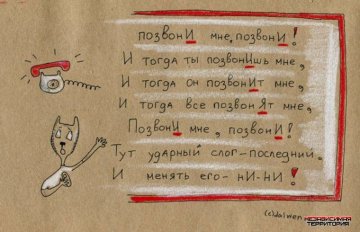 позвонИ мне, позвонИ!
И тогда ты позвонИшь мне,
И тогда он позвонИт мне,
И тогда все позвонЯт мне,
ПозвонИ мне, позвонИ!
Тут ударный слог-последний.
И менять его-нИ-нИ!
(c)dalwen
НЕЗАВИСИМАЯ
ТЕРРИТОРИЯ